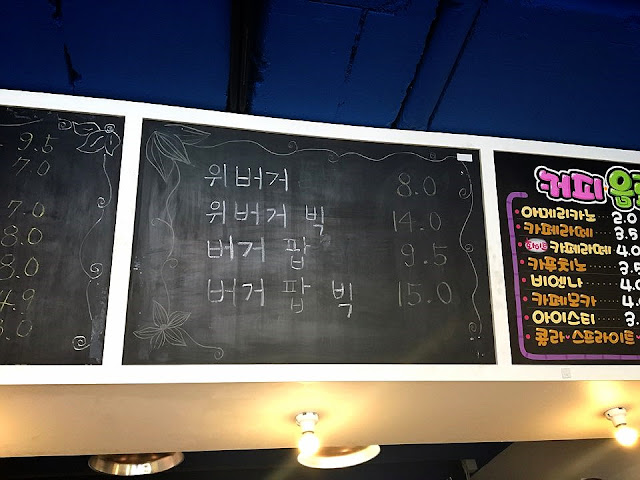 9.5
7.0
7.0
8.0
8.0
4.9
위버거 8.0
위버거 빅 14.0
버거 팝 9.5
버거 팝 빅 15.0
커피·음
아메리카노 2.0
카페라떼 3.5
카페라떼 4.0
카푸치노 3.5
비엔나 4.0
카페모카 4.
아이스티 3.
콜라·스프라이트